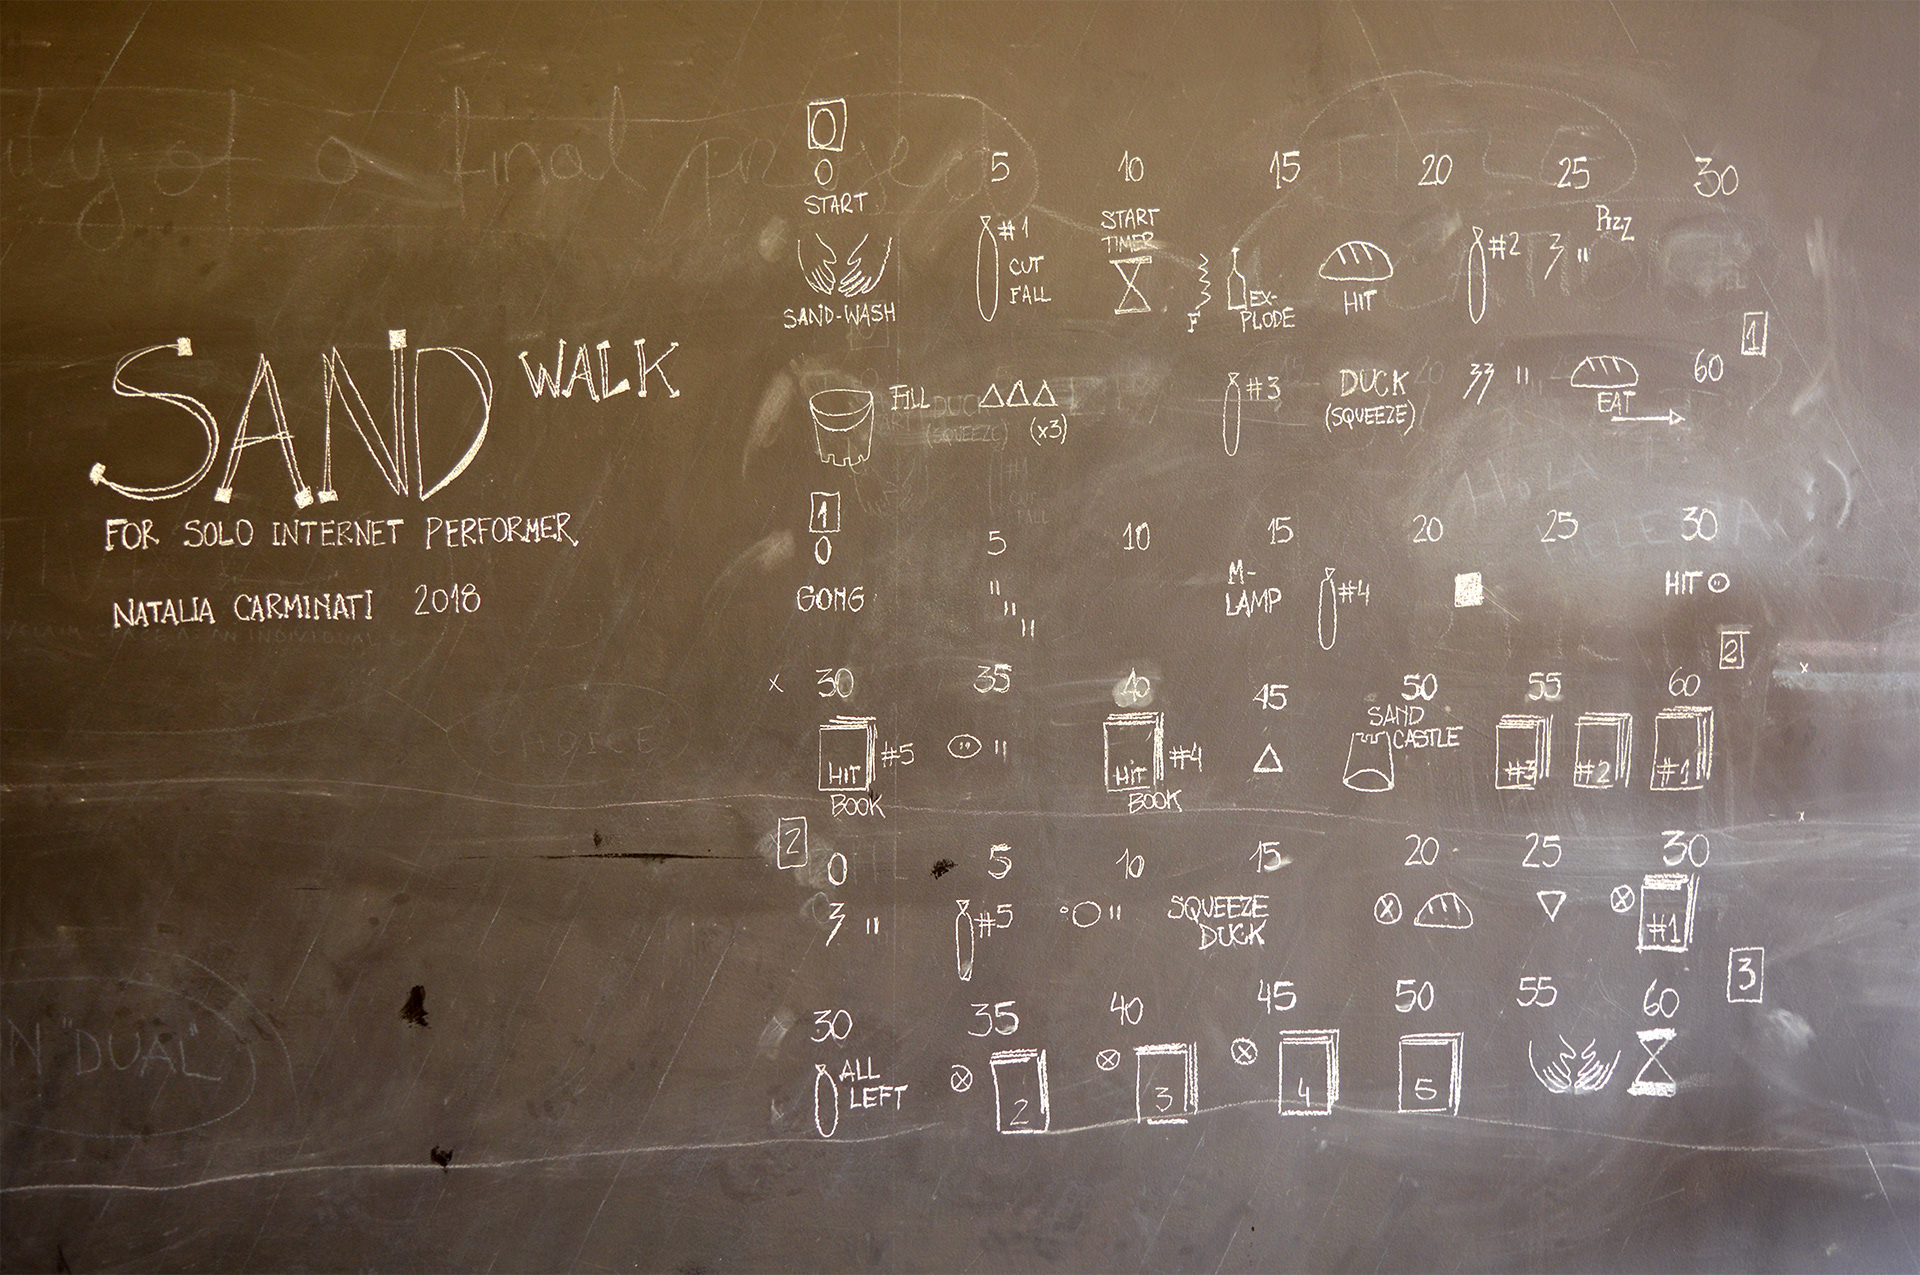 SAND WALK
FOR SOLO INTERNET PERFORMER
NATALIA CARMINATI 2018
0
0 5 10 15 20 25 30
START
SAND-WASH
#1 CUT FALL
START TIMER
F
EX-PLODE
HIT
#2
PIZZ
1
FILL
(x3)
#3
DUCK
(SQUEEZE)
EAT
60
1
0 5 10 15 20 25 30
GONG
M-LAMP
#4
HIT
2
x 30 35 40 45 50 55 60
HIT #5
BOOK
HIT #4
BOOK
SAND CASTLE
#3 #2 #1
2
0 5 10 15 20 25 30
#5
SQUEEZE DUCK
#1
3
30 35 40 45 50 55 60
ALL LEFT
2 3 4 5
ity of a final
CHOICE
"DUAL"